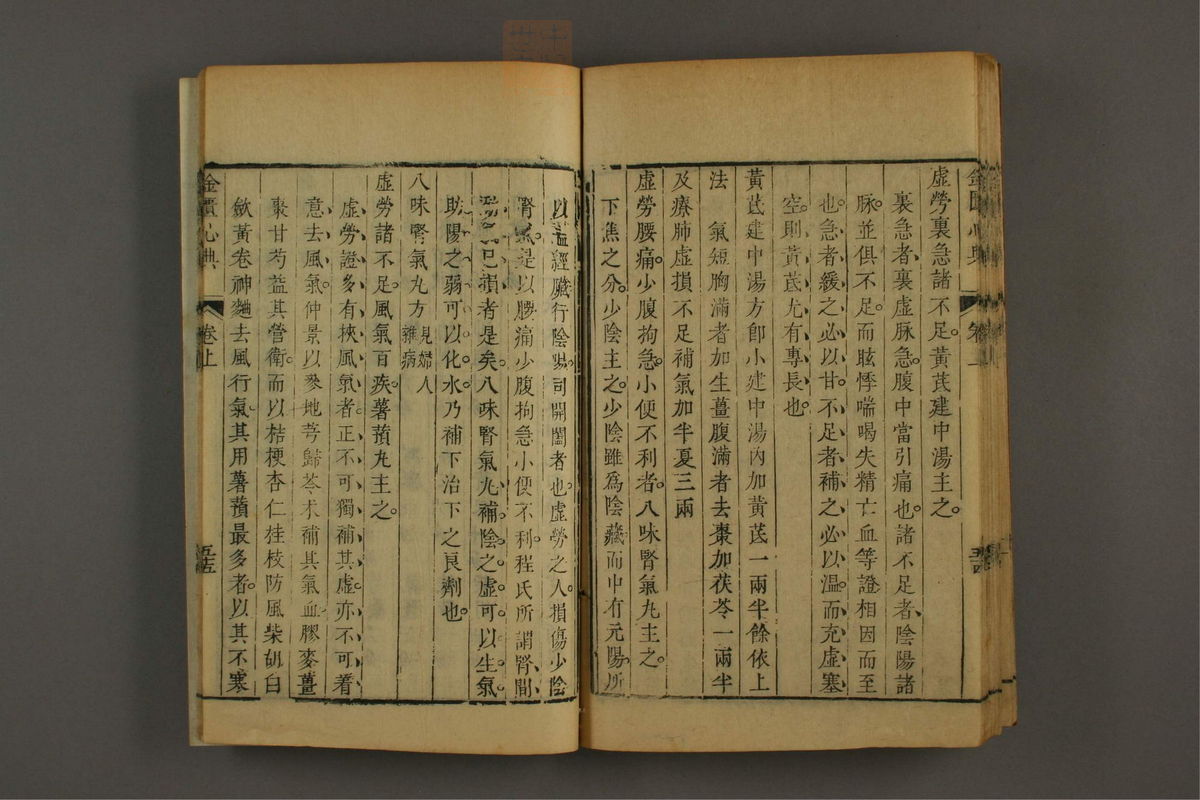 虛勞裏急諸不足。黃芪建中湯主之。
裏急者裏虛脉急。腹中當引痛也。諸不足者陰陽諸
脉。並俱不足。而眩悸喘喝失精亡血等證相因而至
也。急者緩之必以甘。不足者補之必以温。而充虛塞
空。則黃芪尤有專長也
黃芪建中湯方卽小建中湯內加黃芪一兩半餘依上
法 氣短胸滿者加生薑腹滿者去棗加茯苓一兩半
及療肺虛損不足補氣加半夏三兩
虛勞腰痛。少腹拘急。小便不利者。八味腎氣丸主之。
下焦之分。少陰主之。少陰雖爲陰臟而中有元陽。所
以溫經臟行陰陽。司開闔者也。虛勞之人損傷少陰
腎氣。是以腰痛少腹拘急小便不利。程氏所謂腎間
動氣已損者是矣。八味腎氣丸補陰之虛。可以生氣。
助陽之弱可以化水。乃補下治下之良劑也。
八味腎氣丸方 見婦人雜病
虛勞諸不足。風氣百疾。薯蕷丸主之。
虛勞證多有挾風氣者。正不可獨補其虛。亦不可着
意去風氣。仲景以參地芎歸苓朮補其氣血。膠麥薑
棗甘芍益其營衛。而以桔梗杏仁桂枝防風柴胡白
歛黃卷神麯去風行氣。其用薯蕷最多者。以其不寒
金匱心典
卷上
五十五